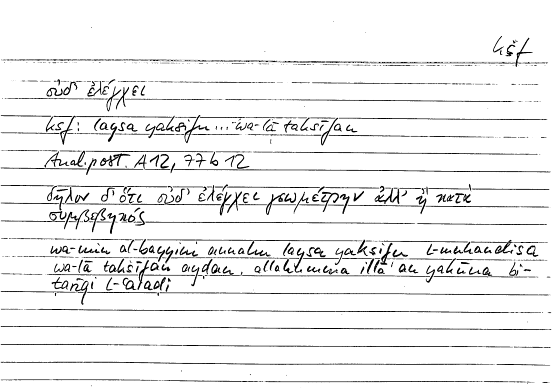 kšf
οὐδ' ἐλέγχει
kšf: laysa yakšifu ... wa-lā takšīfan
Anal. post. A 12, 77 b 12
δῆλον δ' ὅτι οὐδ' ἐλέγχει γεωμέτρην ἀλλ' ἢ κατὰ
συμβεβηκός
wa-min al-bayyini annahu laysa yakšifu l-muhandisa
wa-lā takšīfan ayḍan, allahumma illā an yakūna bi-
ṭarīqi l-ʿaraḍi